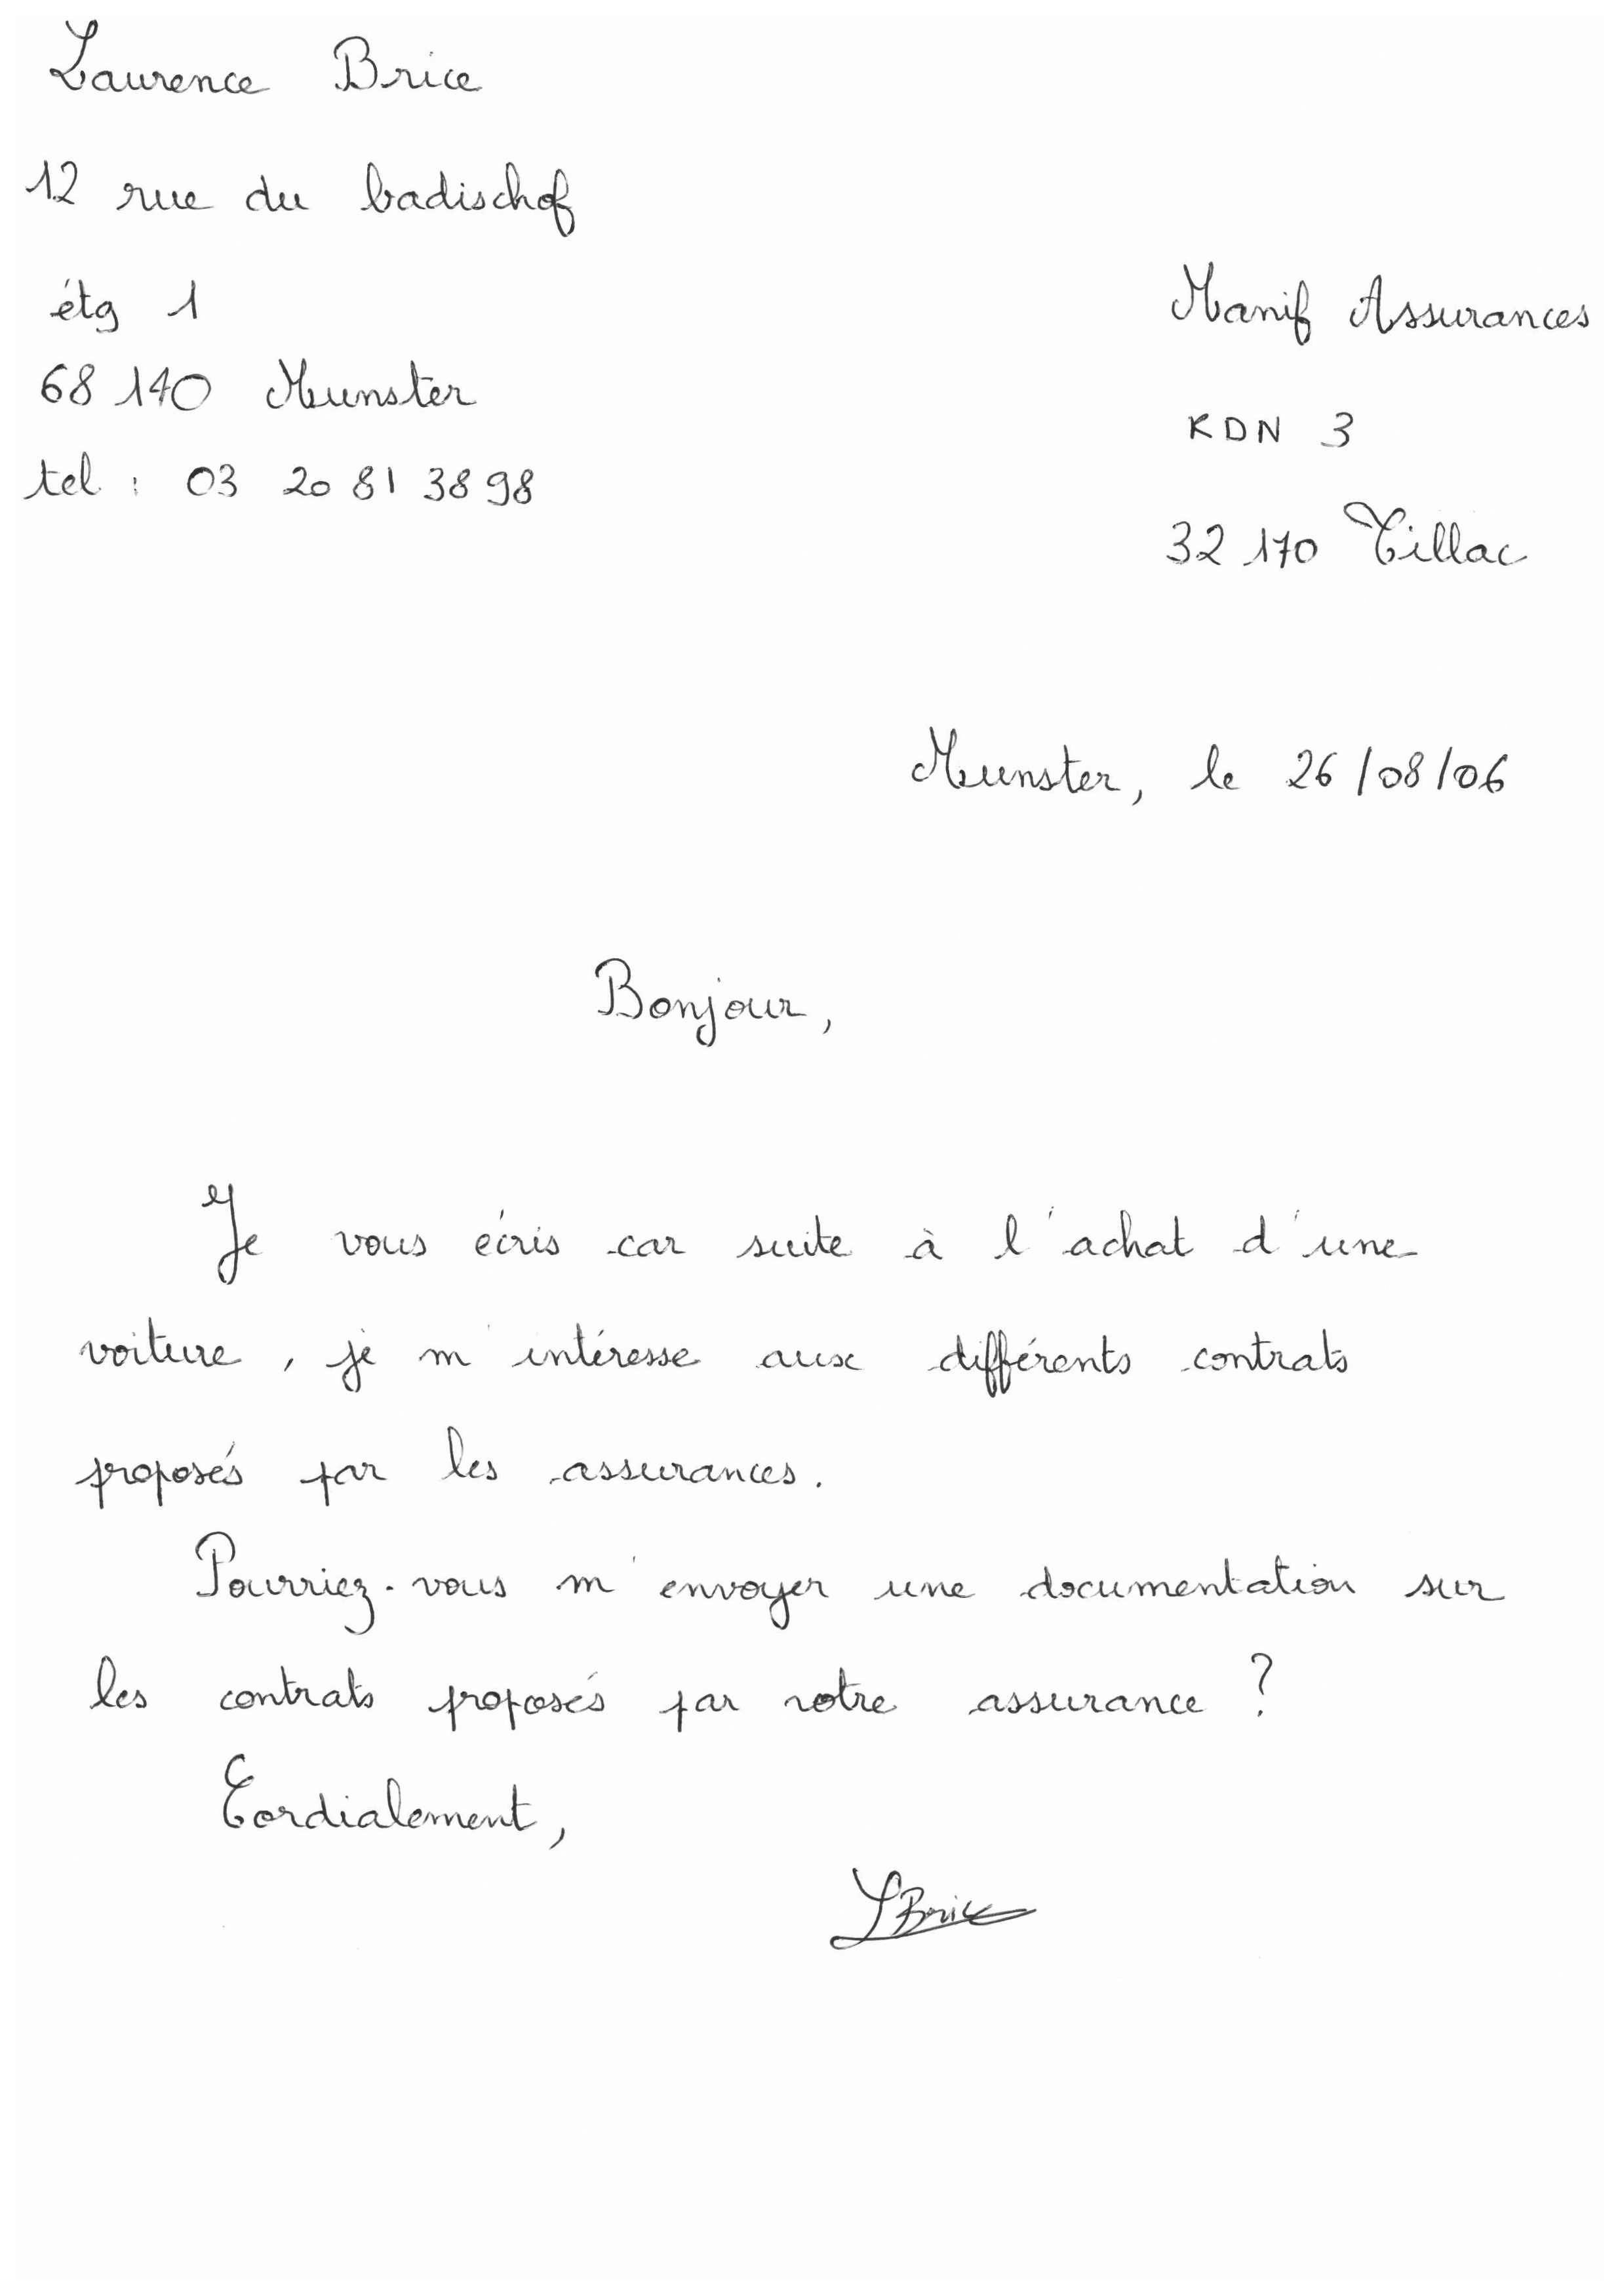 Laurence Brice
12 rue du badischof
étg 1
68 140 Munster
tel : 03 20 81 38 98
Manif Assurances
KDN 3
32 170 Tillac
Munster, le 26/08/06
Bonjour,
Je vous écris car suite à l'achat d'une
voiture, je m'intéresse aux différents contrats
proposés par les assurances.
Pourriez-vous m'envoyer une documentation sur
les contrats proposés par votre assurance ?
Cordialement,
LBrice